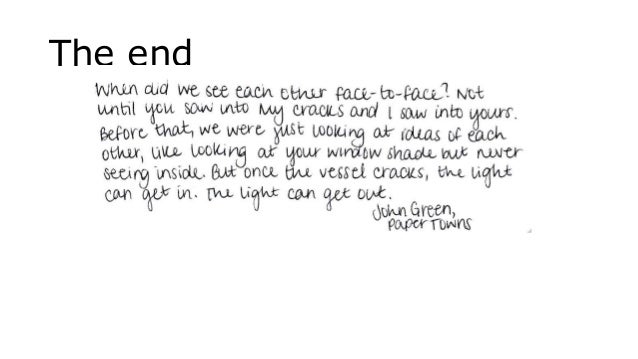 The end
When did we see each other face-to-face? Not
until you saw into my cracks and I saw into yours.
Before that, we were just looking at ideas of each
other, like looking at your window shade but never
seeing inside. But once the vessel cracks, the light
can get in. The light can get out.
John Green,
Paper Towns